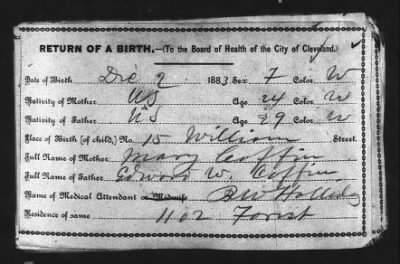 RETURN OF A BIRTH.—(To the Board of Health of the City of Cleveland.)
Date of Birth Dec 2 1883 Sex F Color W
Nativity of Mother US Age 24 Color W
Nativity of Father US Age 29 Color W
Place of Birth (of child,) No. 15 William Street.
Full Name of Mother Mary Coffin
Full Name of Father Edward W. Coffin
Name of Medical Attendant or Midwife BW Holliday
Residence of same 1102 Forest